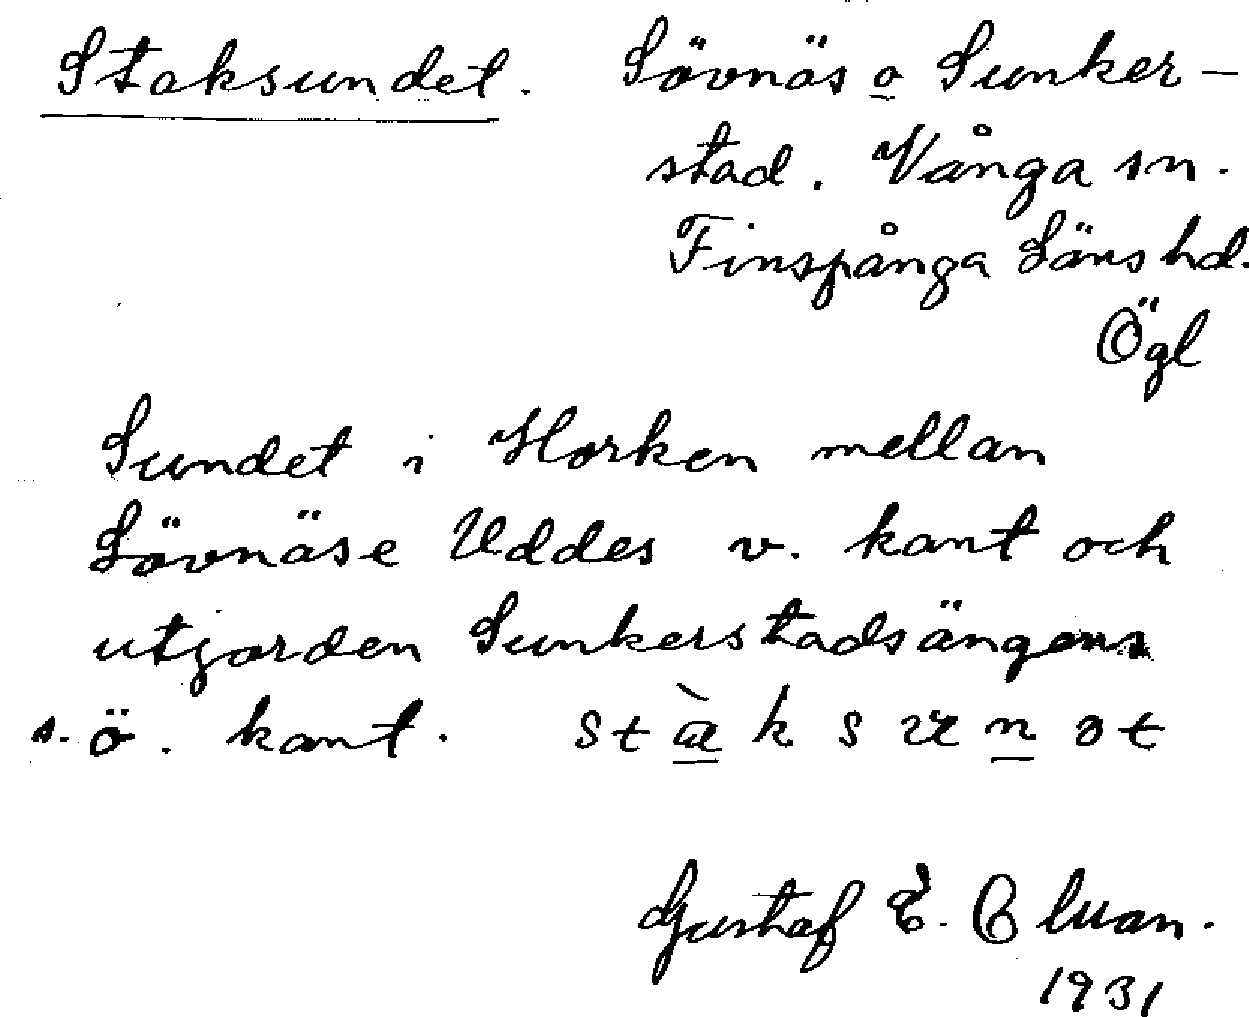 Staksundet. Lövnäs o Sunker-
stad. Vånga sn.
Finspånga Läns hd.
Ögl
Sundet i Horken mellan
Lövnäse Uddes v. kant och
utjorden Sunkerstadsängens
s.ö. kant.
Gustaf E.
1931